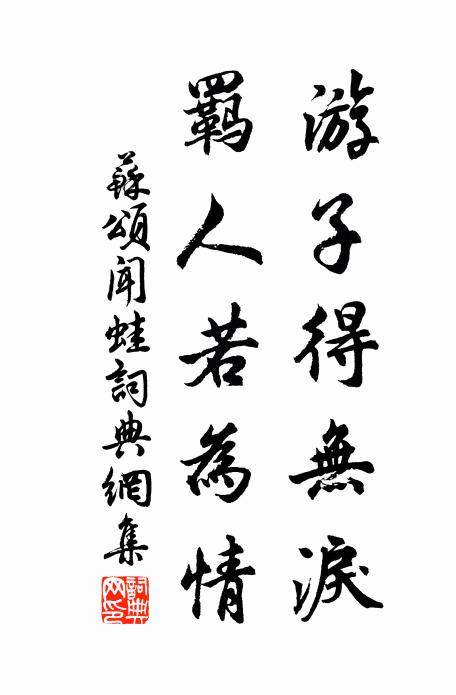 游子得無淚
羈人若為情
蘇頌聞蛙詞典網集
詞典網印